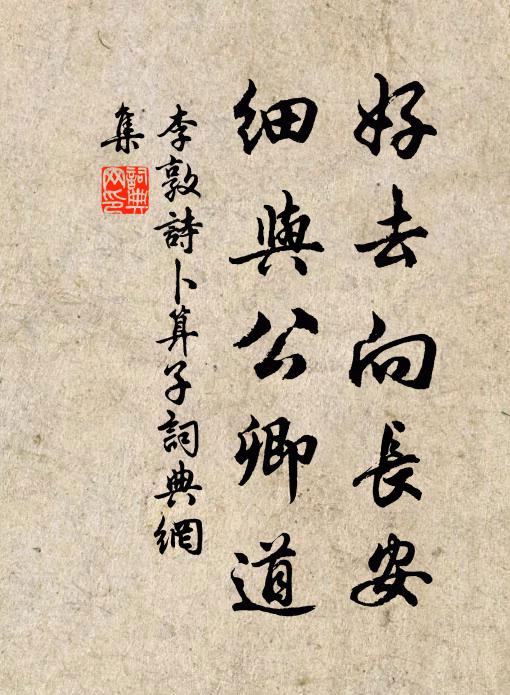 好去向長安
細與公卿道
李敦詩卜算子詞典網
集
詞典
网印